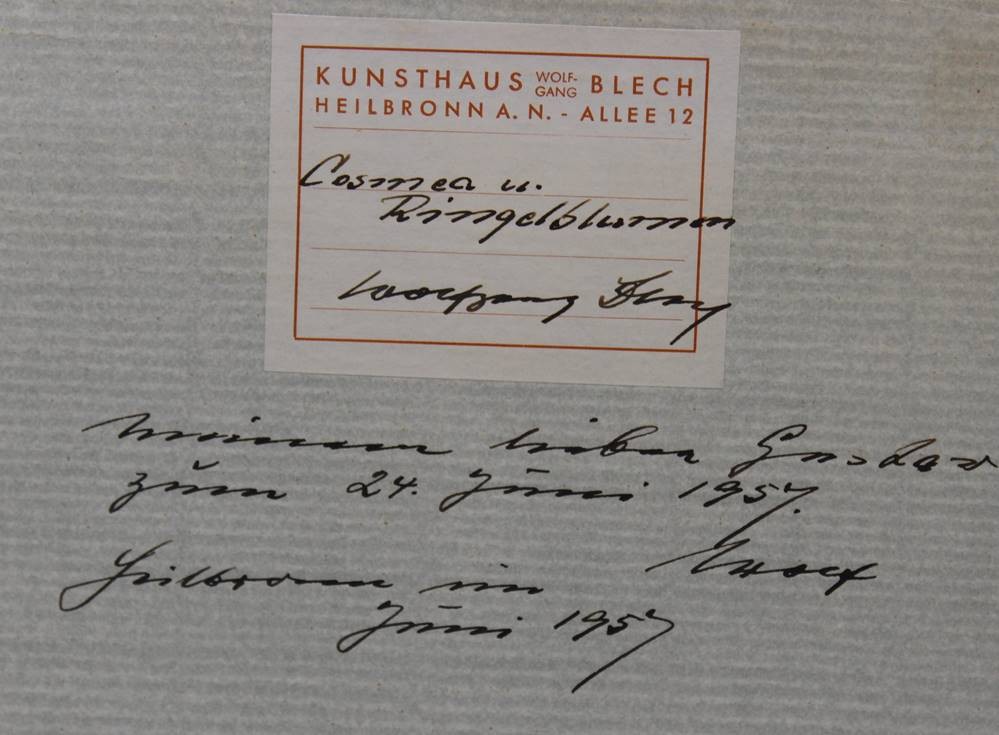 KUNSTHAUS WOLF-GANG BLECH
HEILBRONN A. N. - ALLEE 12
Cosmea u.
Ringelblumen
Wolfgang
Meinem lieben Gustav
zum 24. Juni 1957.
Heilbronn im
Juni 1957